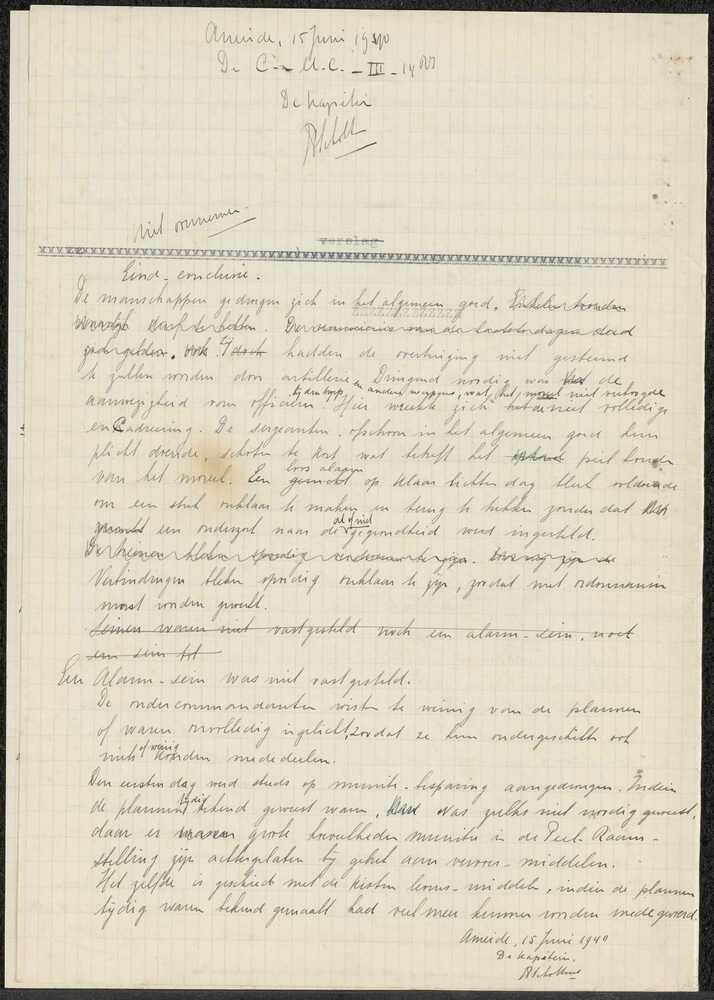 Ameide, 15 Juni 1940
De C.- M.C. - III - 14 RI
De Kapitein
niet opnemen
verslag
Eind-conclusie.
De manschappen gedroegen zich in het algemeen goed.
hadden de overtuiging niet gesteund
te zullen worden door artillerie en andere wapens, wat het moreel niet verhoogde
Dringend noodig was de
aanwezigheid van officieren. Hier wreekte zich de niet volledige
encadreering. De sergeanten, ofschoon in het algemeen goed hun
plicht doende, schoten te kort wat betreft het peil houden
van het moreel. Een loos alarm op klaar lichten dag bleek voldoende
om een stuk onklaar te maken en terug te trekken zonder dat
een onderzoek naar de al of niet gegrondheid werd ingesteld.
Verbindingen bleken spoedig onklaar te zijn, zoodat met ordonnansen
moest worden gewerkt.
Seinen waren niet vastgesteld noch een alarm-sein, noch
een sein tot
Een Alarm-sein was niet vastgesteld.
De ondercommandanten wisten te weinig van de plannen
of waren onvolledig ingelicht, zoodat ze hun ondergeschikten ook
niets of weinig konden mededeelen.
Den eersten dag werd steeds op munitie-besparing aangedrongen. Indien
de plannen tijdig bekend geweest waren, was zulks niet noodig geweest,
daar er groote hoeveelheden munitie in de Peel-Raam-
stelling zijn achtergelaten bij gebrek aan vervoer-middelen.
Het zelfde is geschied met de kisten levens-middelen, indien de plannen
tijdig waren bekend gemaakt had veel meer kunnen worden medegevoerd.
Ameide, 15 Juni 1940
De Kapitein.